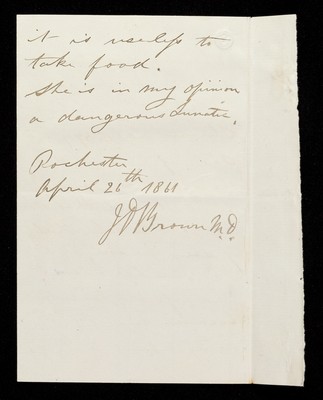 it is useless to
take food.
She is in my opinion
a dangerous Lunatic.
Rochester
April 26th 1861
J D Brown M.D.